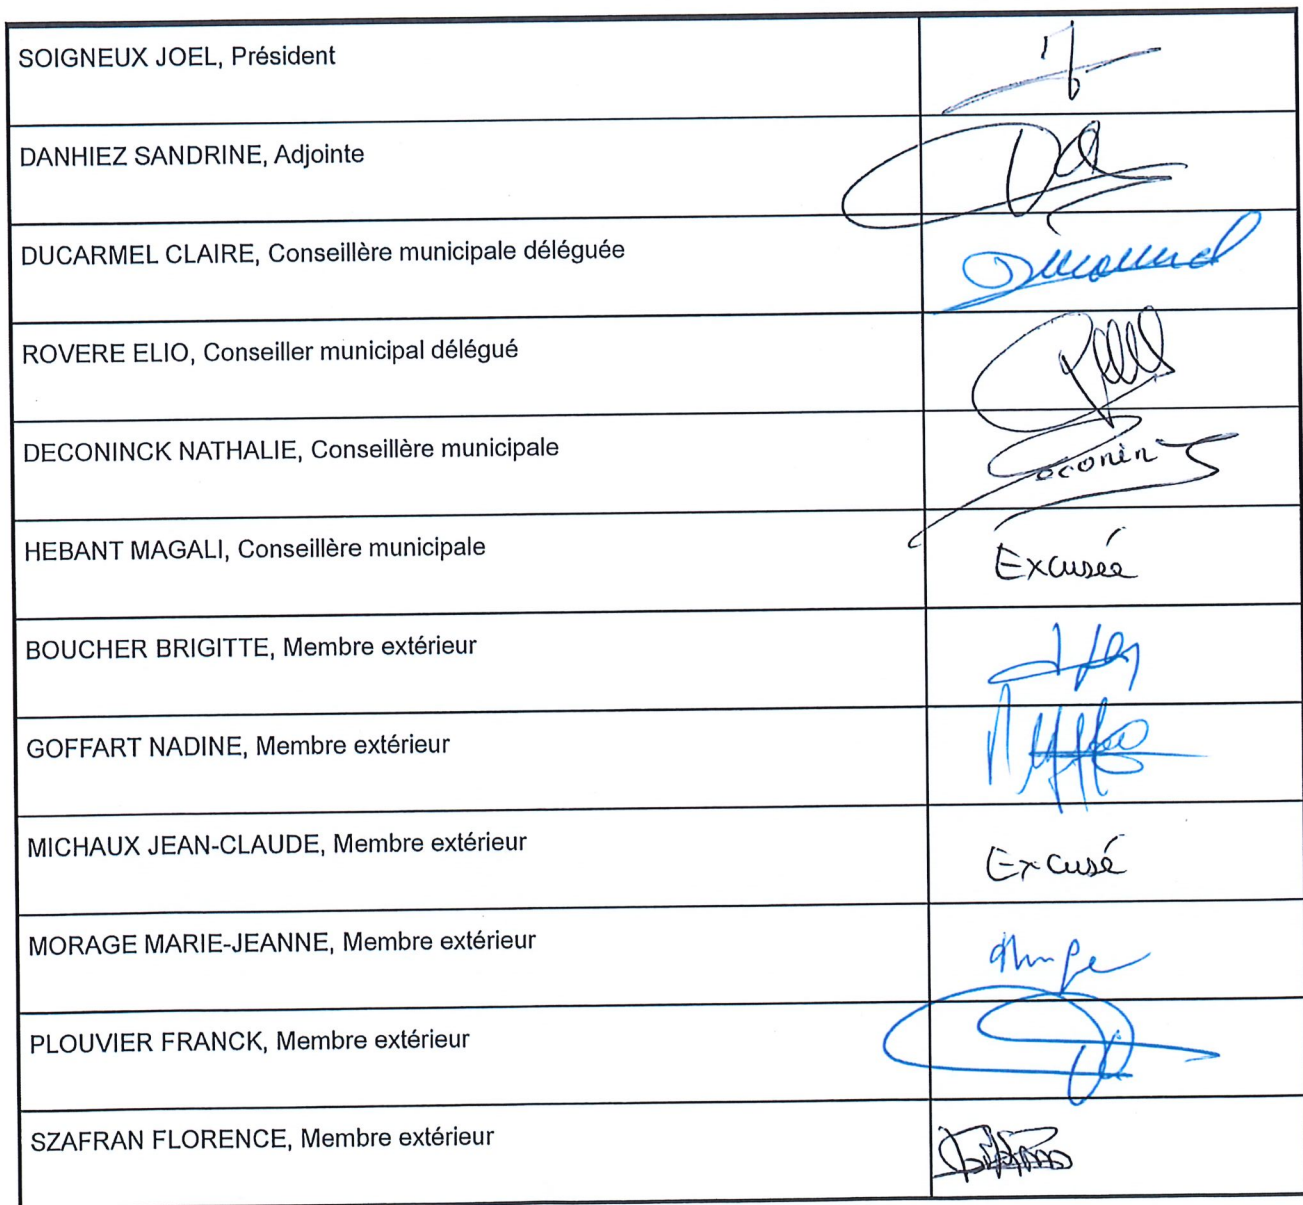 SOIGNEUX JOEL, Président
DANHIEZ SANDRINE, Adjointe
DUCARMEL CLAIRE, Conseillère municipale déléguée
Ducarmel
ROVERE ELIO, Conseiller municipal délégué
DECONINCK NATHALIE, Conseillère municipale
HEBANT MAGALI, Conseillère municipale
Excusée
BOUCHER BRIGITTE, Membre extérieur
GOFFART NADINE, Membre extérieur
MICHAUX JEAN-CLAUDE, Membre extérieur
Excusé
MORAGE MARIE-JEANNE, Membre extérieur
PLOUVIER FRANCK, Membre extérieur
SZAFRAN FLORENCE, Membre extérieur